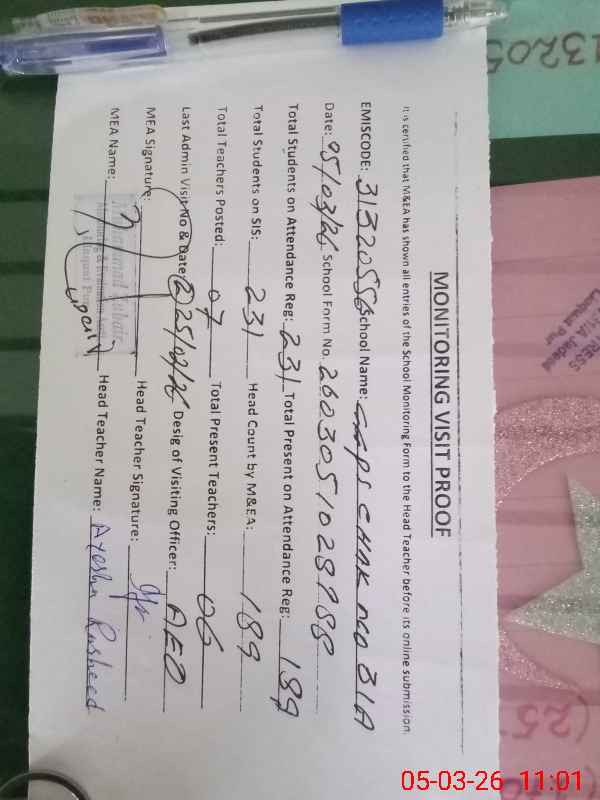 MONITORING VISIT PROOF
It is certified that M&EA has shown all entries of the School Monitoring Form to the Head Teacher before its online submission.
EMISCODE: 31320556 School Name: GGPS CHAK NO 31A
Date: 05/03/26 School Form No. 2603051028988
Total Students on Attendance Reg: 231 Total Present on Attendance Reg: 189
Total Students on SIS: 231 Head Count by M&EA: 189
Total Teachers Posted: 07 Total Present Teachers: 06
Last Admin Visit No & Date: 2 25/02/26 Desig of Visiting Officer: AEO
MEA Signature: Head Teacher Signature:
MEA Name: Head Teacher Name: Ayesha Rasheed
Monitoring & Evaluation
313205
(25
05-03-26 11:01